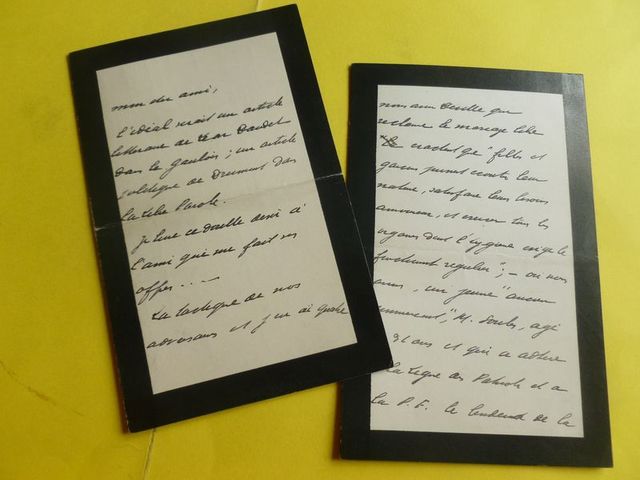 mon cher ami,
l'idéal serait un article
littéraire de Léon Daudet
dans le Gaulois ; un article
politique de Drumont dans
la Libre Parole.
je livre ce double desir à
l'ami qui me fait ses
offres...
La tactique de nos
adversaires et j'en ai
nous avons Deville qui
réclame le mariage libre
"que" filles et
garçons puissent contre leur
nature, satisfaire leurs besoins
amoureux, et exercer tous les
organes dont l'hygiène exige le
fonctionnement régulier" ; – ou nous
avons, un jeune "ancien
", M. Doubs, agé
ans et qui a adhéré
la Ligue des Patriotes et a
la P. F. le lendemain de la